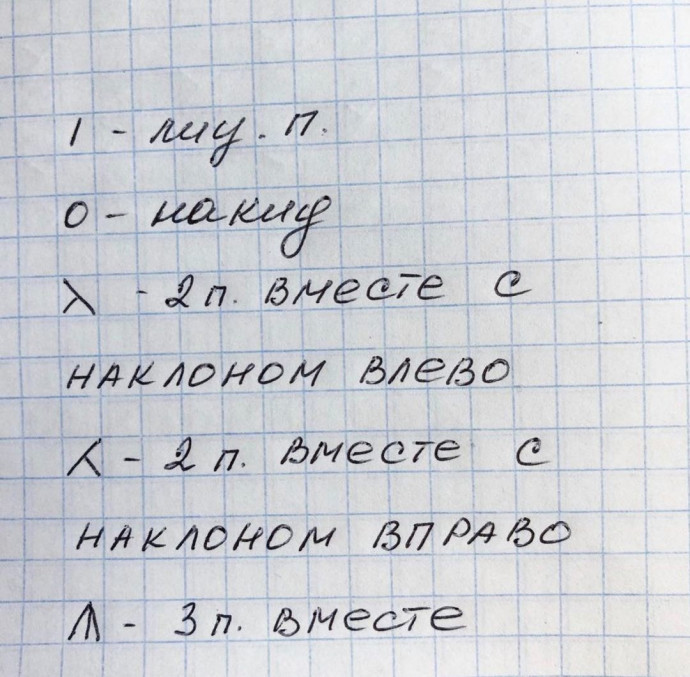 I - лиц. п.
О - накид
⋋ - 2 п. вместе с
наклоном влево
⋌ - 2 п. вместе с
наклоном вправо
⩚ - 3 п. вместе